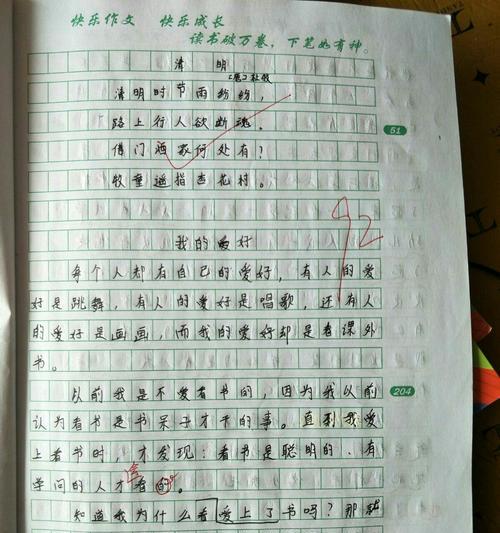 快乐作文 快乐成长
读书破万卷，下笔如有神。
清明
(唐)杜牧
清明时节雨纷纷，
路上行人欲断魂。
借门酒家何处有？
牧童遥指杏花村。
51
92
我的爱好
每个人都有自己的爱好，有人的爱
好是跳舞，有人的爱好是唱歌，还有人
的爱好是画画，而我的爱好却是看课外
书。
以前我是不爱看书的，因为我以前
204
认为看书是书呆子才干的事。直到我爱
上看书时，才发现：看书是聪明的、有
学问的人才会看的。
知道我为什么看爱上了书吗？那就